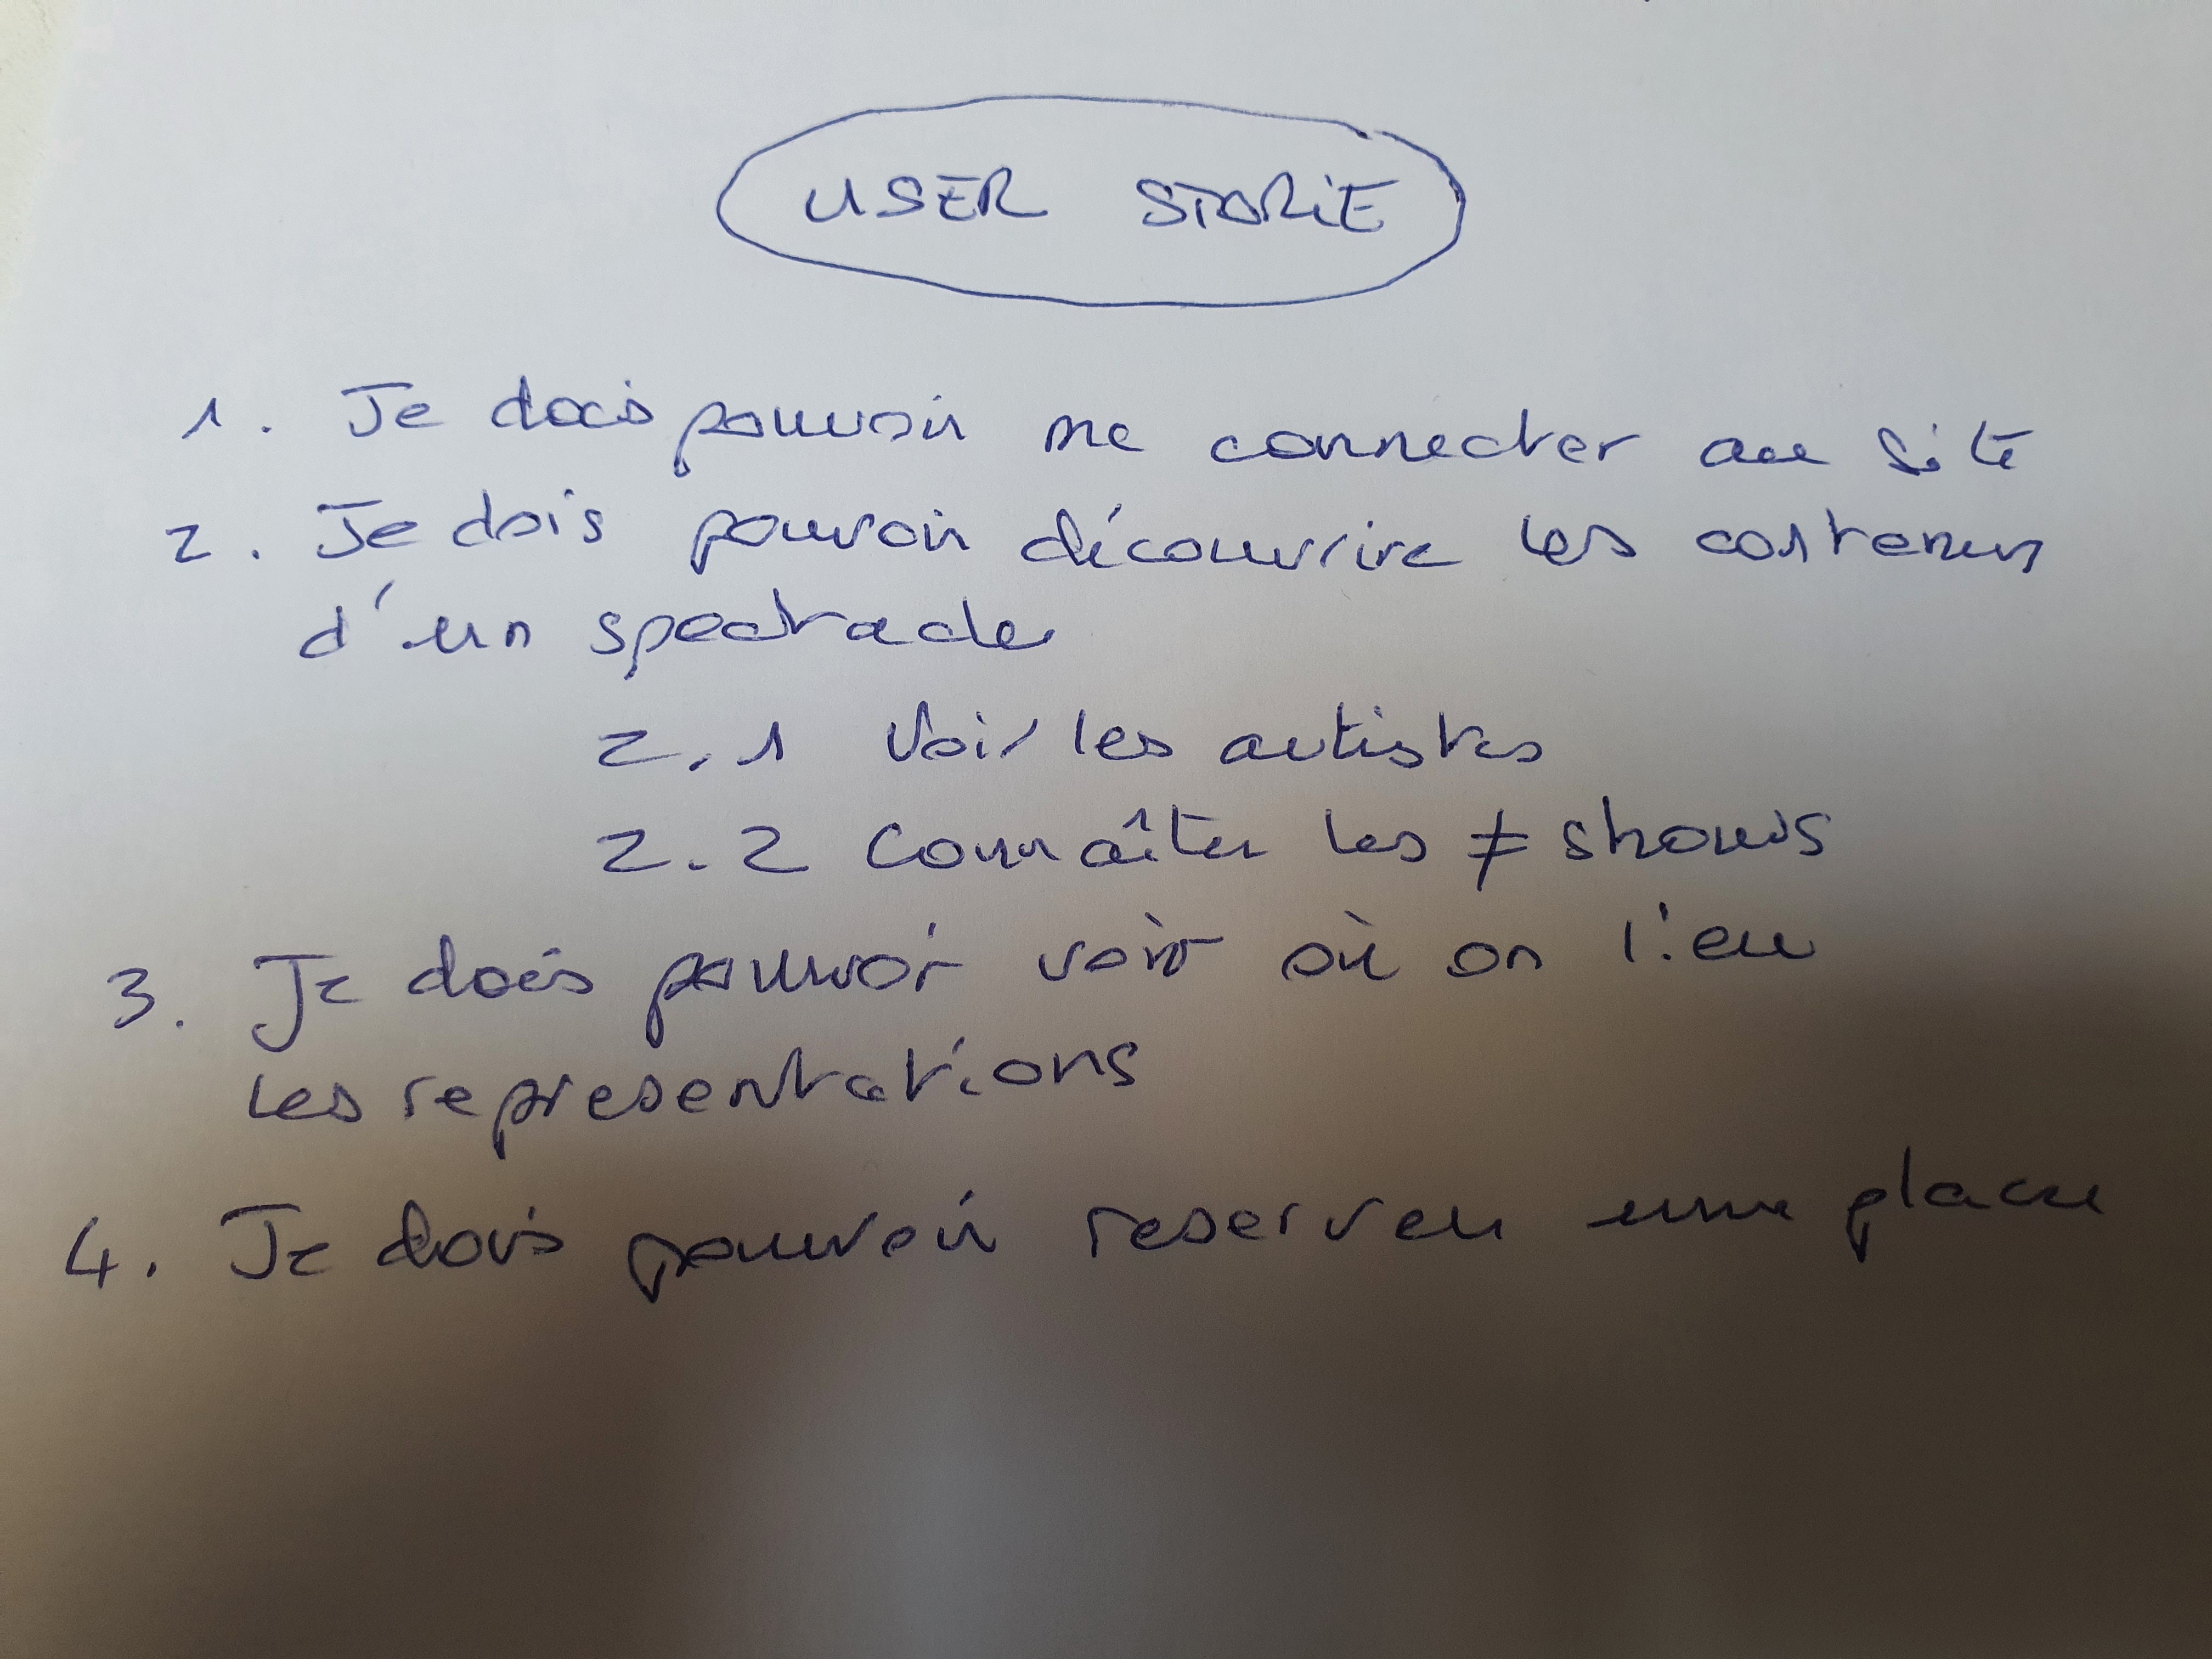 USER STORIE
1. Je dois pouvoir me connecter au site
2. Je dois pouvoir découvrire les contenus
d'un spectacle
2.1 Voir les artistes
2.2 Connaître les ≠ shows
3. Je dois pouvoir voir où on lieu
les representrations
4. Je dois pouvoir reserver une place